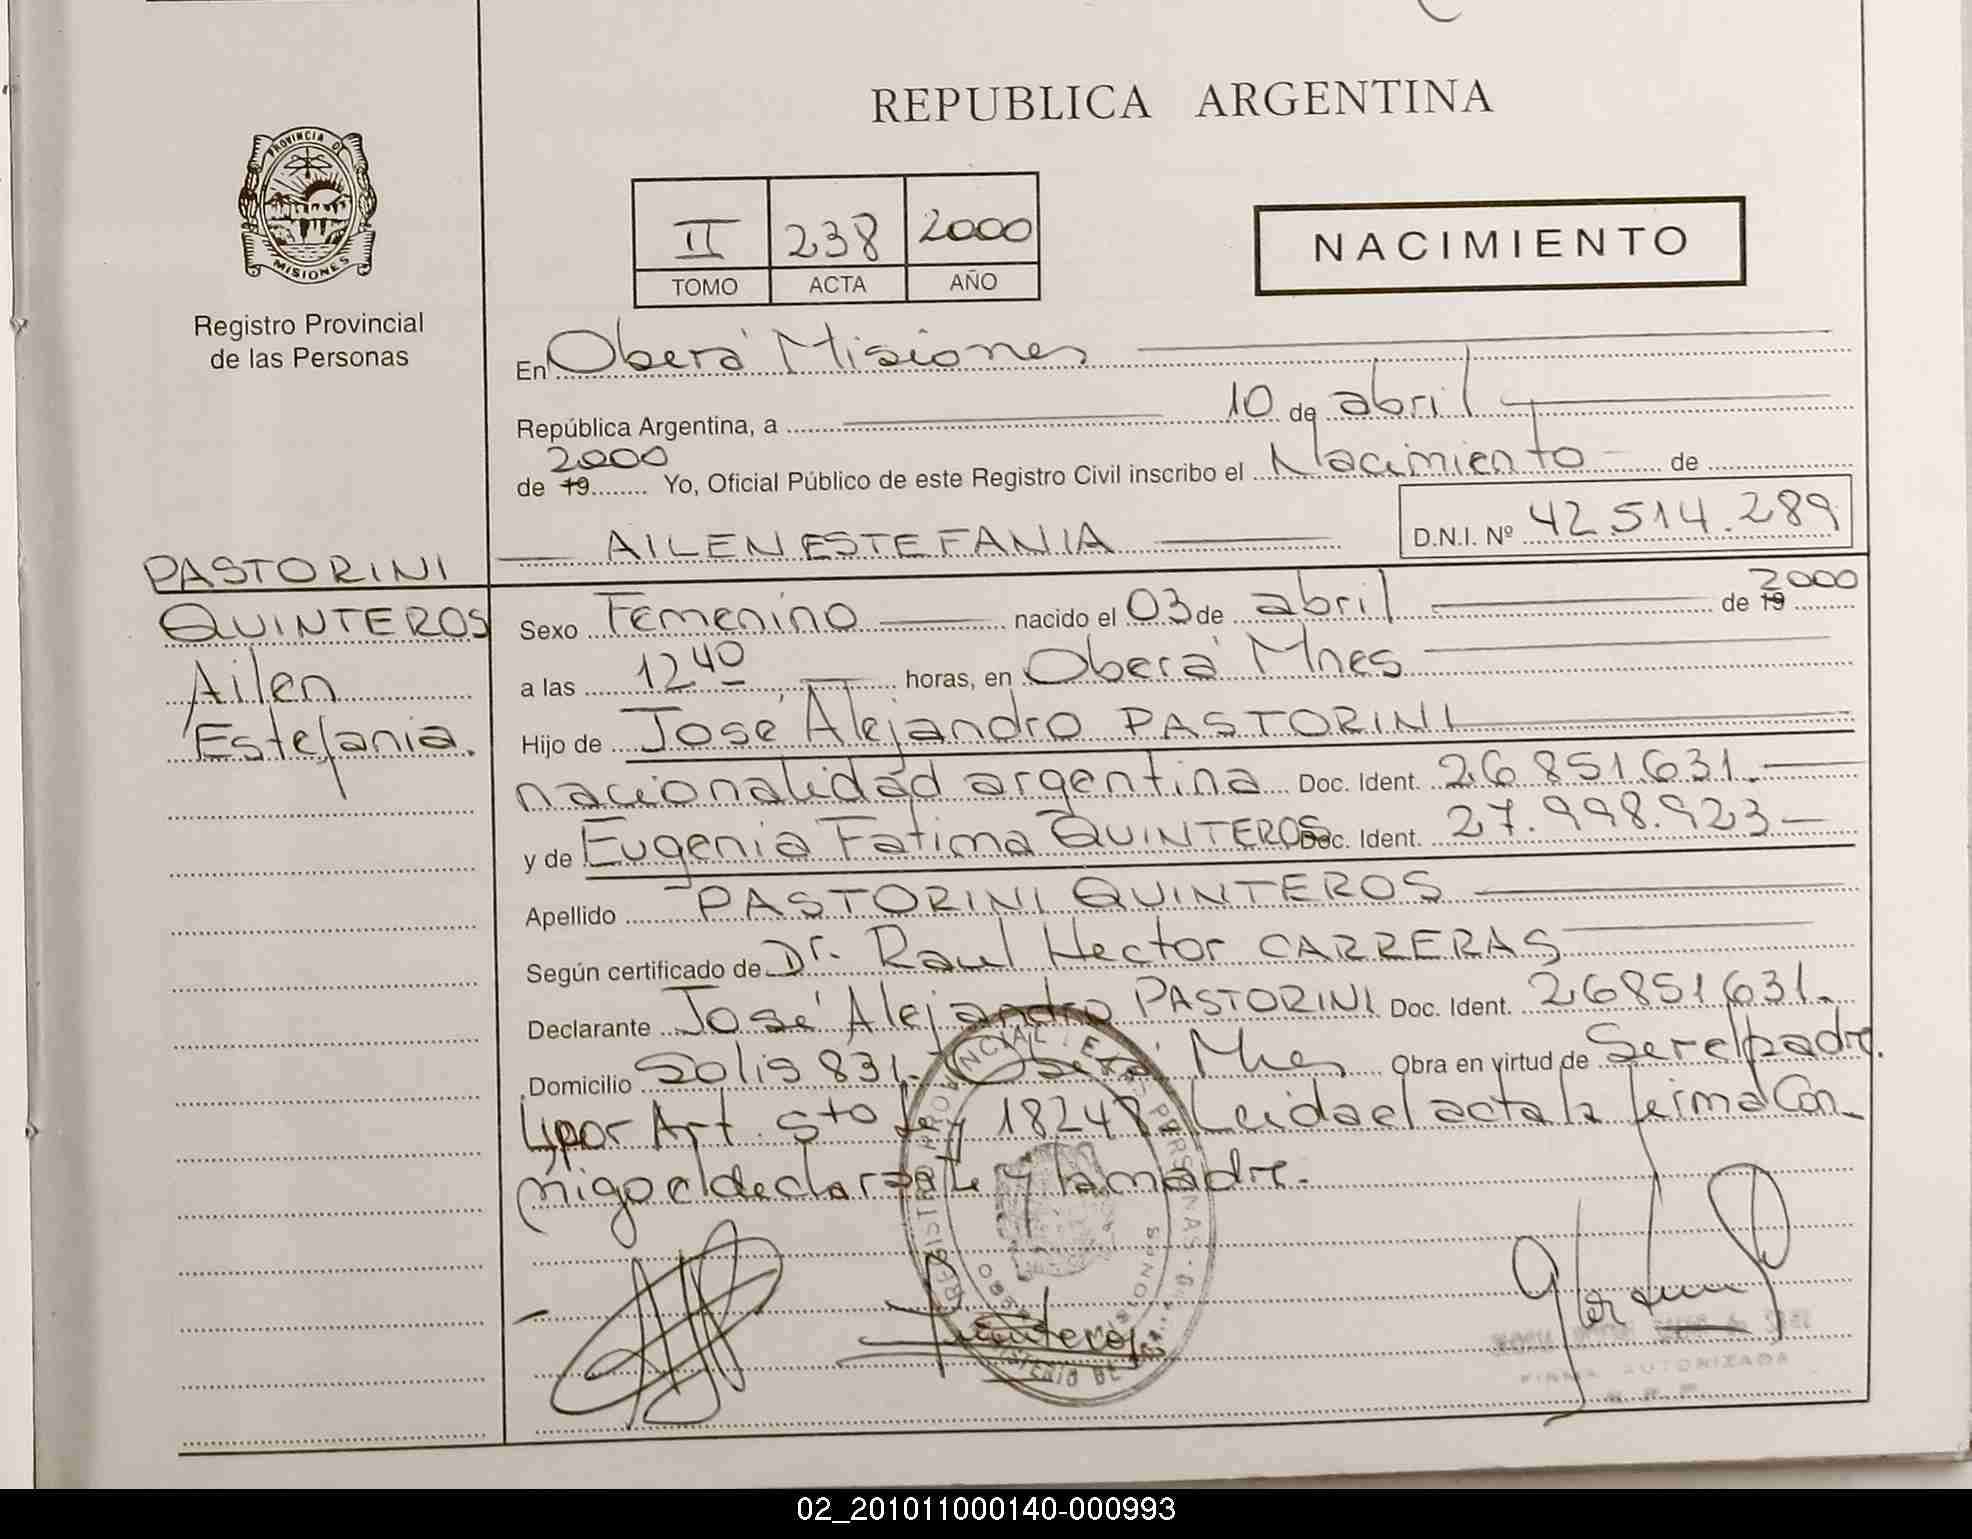 REPUBLICA ARGENTINA
PROVINCIA DE
MISIONES
Registro Provincial
de las Personas
II 238 2000
TOMO ACTA AÑO
NACIMIENTO
En Oberá Misiones
República Argentina, a 10 de abril
2000
de 19 Yo, Oficial Público de este Registro Civil inscribo el Nacimiento de
AILEN ESTEFANIA D.N.I. Nº 42.514.289
PASTORINI
QUINTEROS
Ailen
Estefania.
Sexo Femenino nacido el 03 de abril de 19 2000
a las 12 40 horas, en Oberá Mnes
Hijo de José Alejandro PASTORINI
nacionalidad argentina Doc. Ident. 26.851.631.
y de Eugenia Fatima QUINTEROS Doc. Ident. 27.998.923
Apellido PASTORINI QUINTEROS
Según certificado de Dr. Raul Hector CARRERAS
Declarante José Alejandro PASTORINI Doc. Ident. 26851631.
Domicilio Solis 831. Oberá Mnes Obra en virtud de Ser el padre.
y por Art. 5to Ley 18248. Leida el acta la firma con
migo el declarante y la madre.
Quinteros
FIRMA AUTORIZADA
02_201011000140-000993